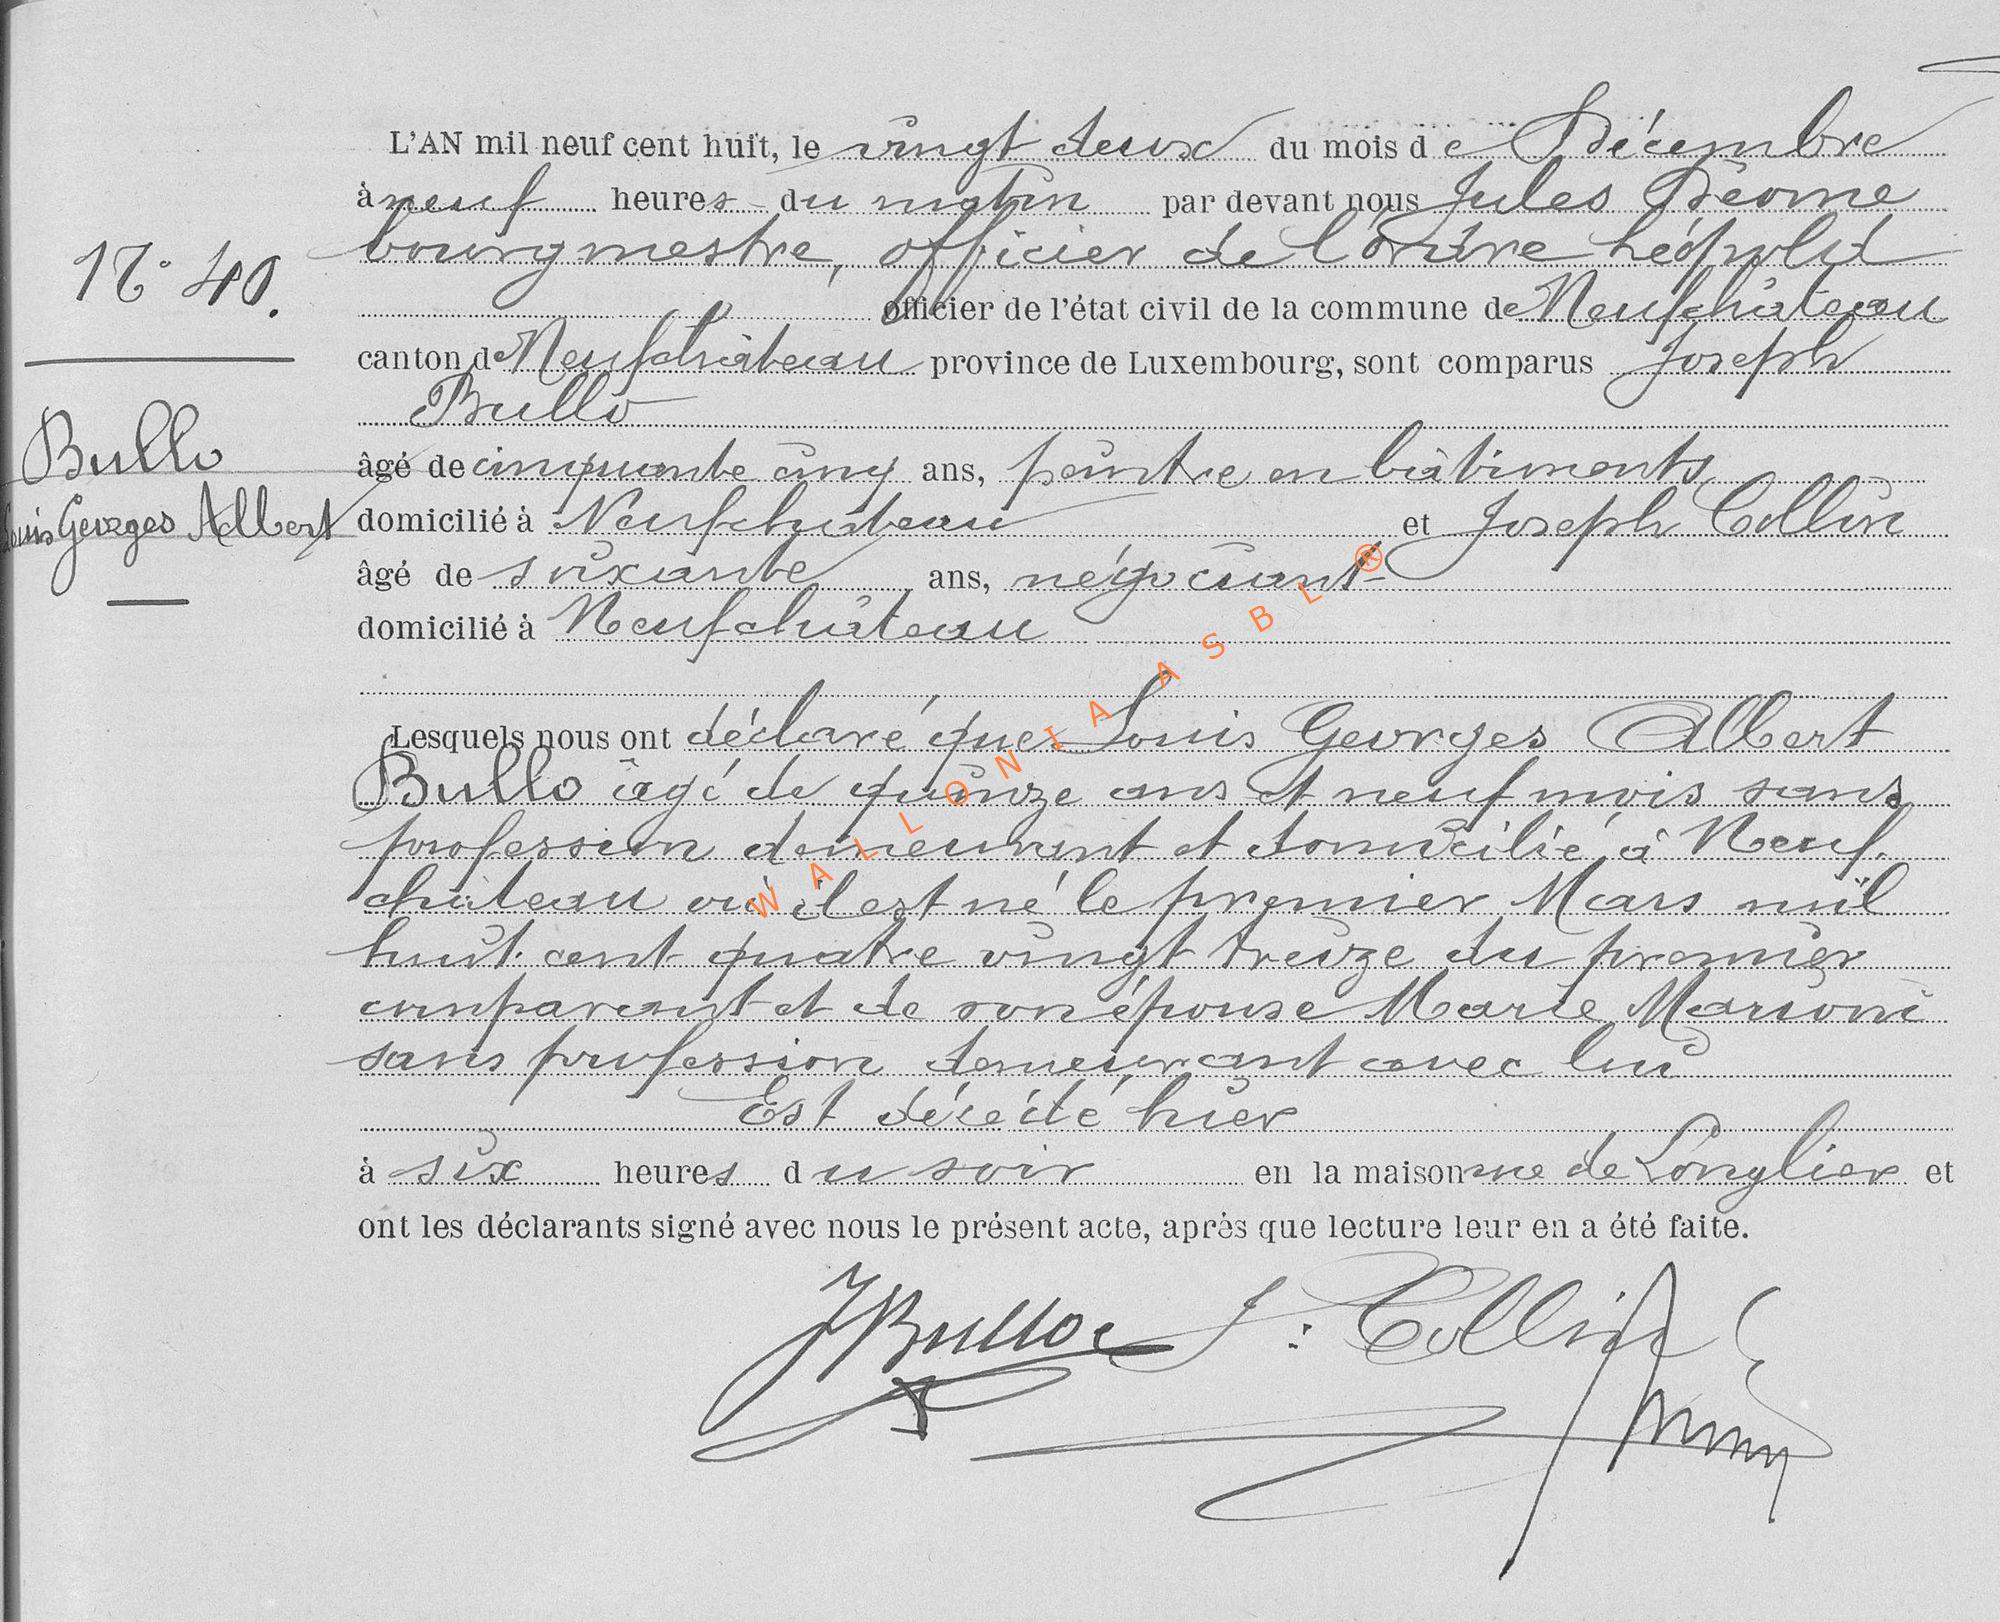 L'AN mil neuf cent huit, le vingt deux du mois de Décembre
à neuf heures du matin par devant nous Jules Déome
bourgmestre, officier de l'ordre Léopold
officier de l'état civil de la commune de Neufchâteau
N° 40.
canton de Neufchâteau province de Luxembourg, sont comparus Joseph
Bullo
Bullo
Louis Georges Albert
âgé de cinquante cinq ans, peintre en bâtiments
domicilié à Neufchâteau et Joseph Collin
âgé de soixante ans, négociant
domicilié à Neufchâteau
WALLONIA ASBL ®
Lesquels nous ont déclaré que Louis Georges Albert
Bullo âgé de quinze ans et neuf mois sans
profession demeurant et domicilié à Neuf-
château où il est né le premier Mars mil
huit cent quatre vingt treize du premier
comparant et de son épouse Marie Marioni
sans profession demeurant avec lui
Est décédé hier
à six heures du soir en la maison rue de Longlier et
ont les déclarants signé avec nous le présent acte, après que lecture leur en a été faite.
JBullo J: Collin